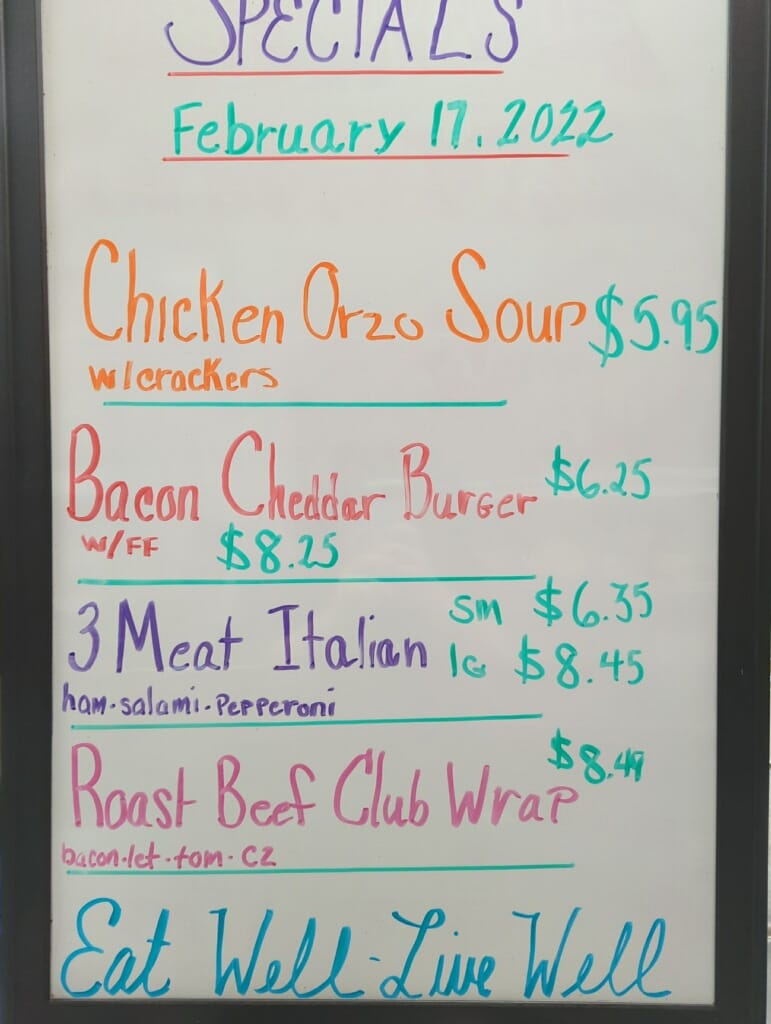 SPECIALS
February 17, 2022
Chicken Orzo Soup $5.95
w/crackers
Bacon Cheddar Burger $6.25
w/FF $8.25
3 Meat Italian sm $6.35
lg $8.45
ham-salami-pepperoni
Roast Beef Club Wrap $8.49
bacon-let-tom-cz
Eat Well-Live Well